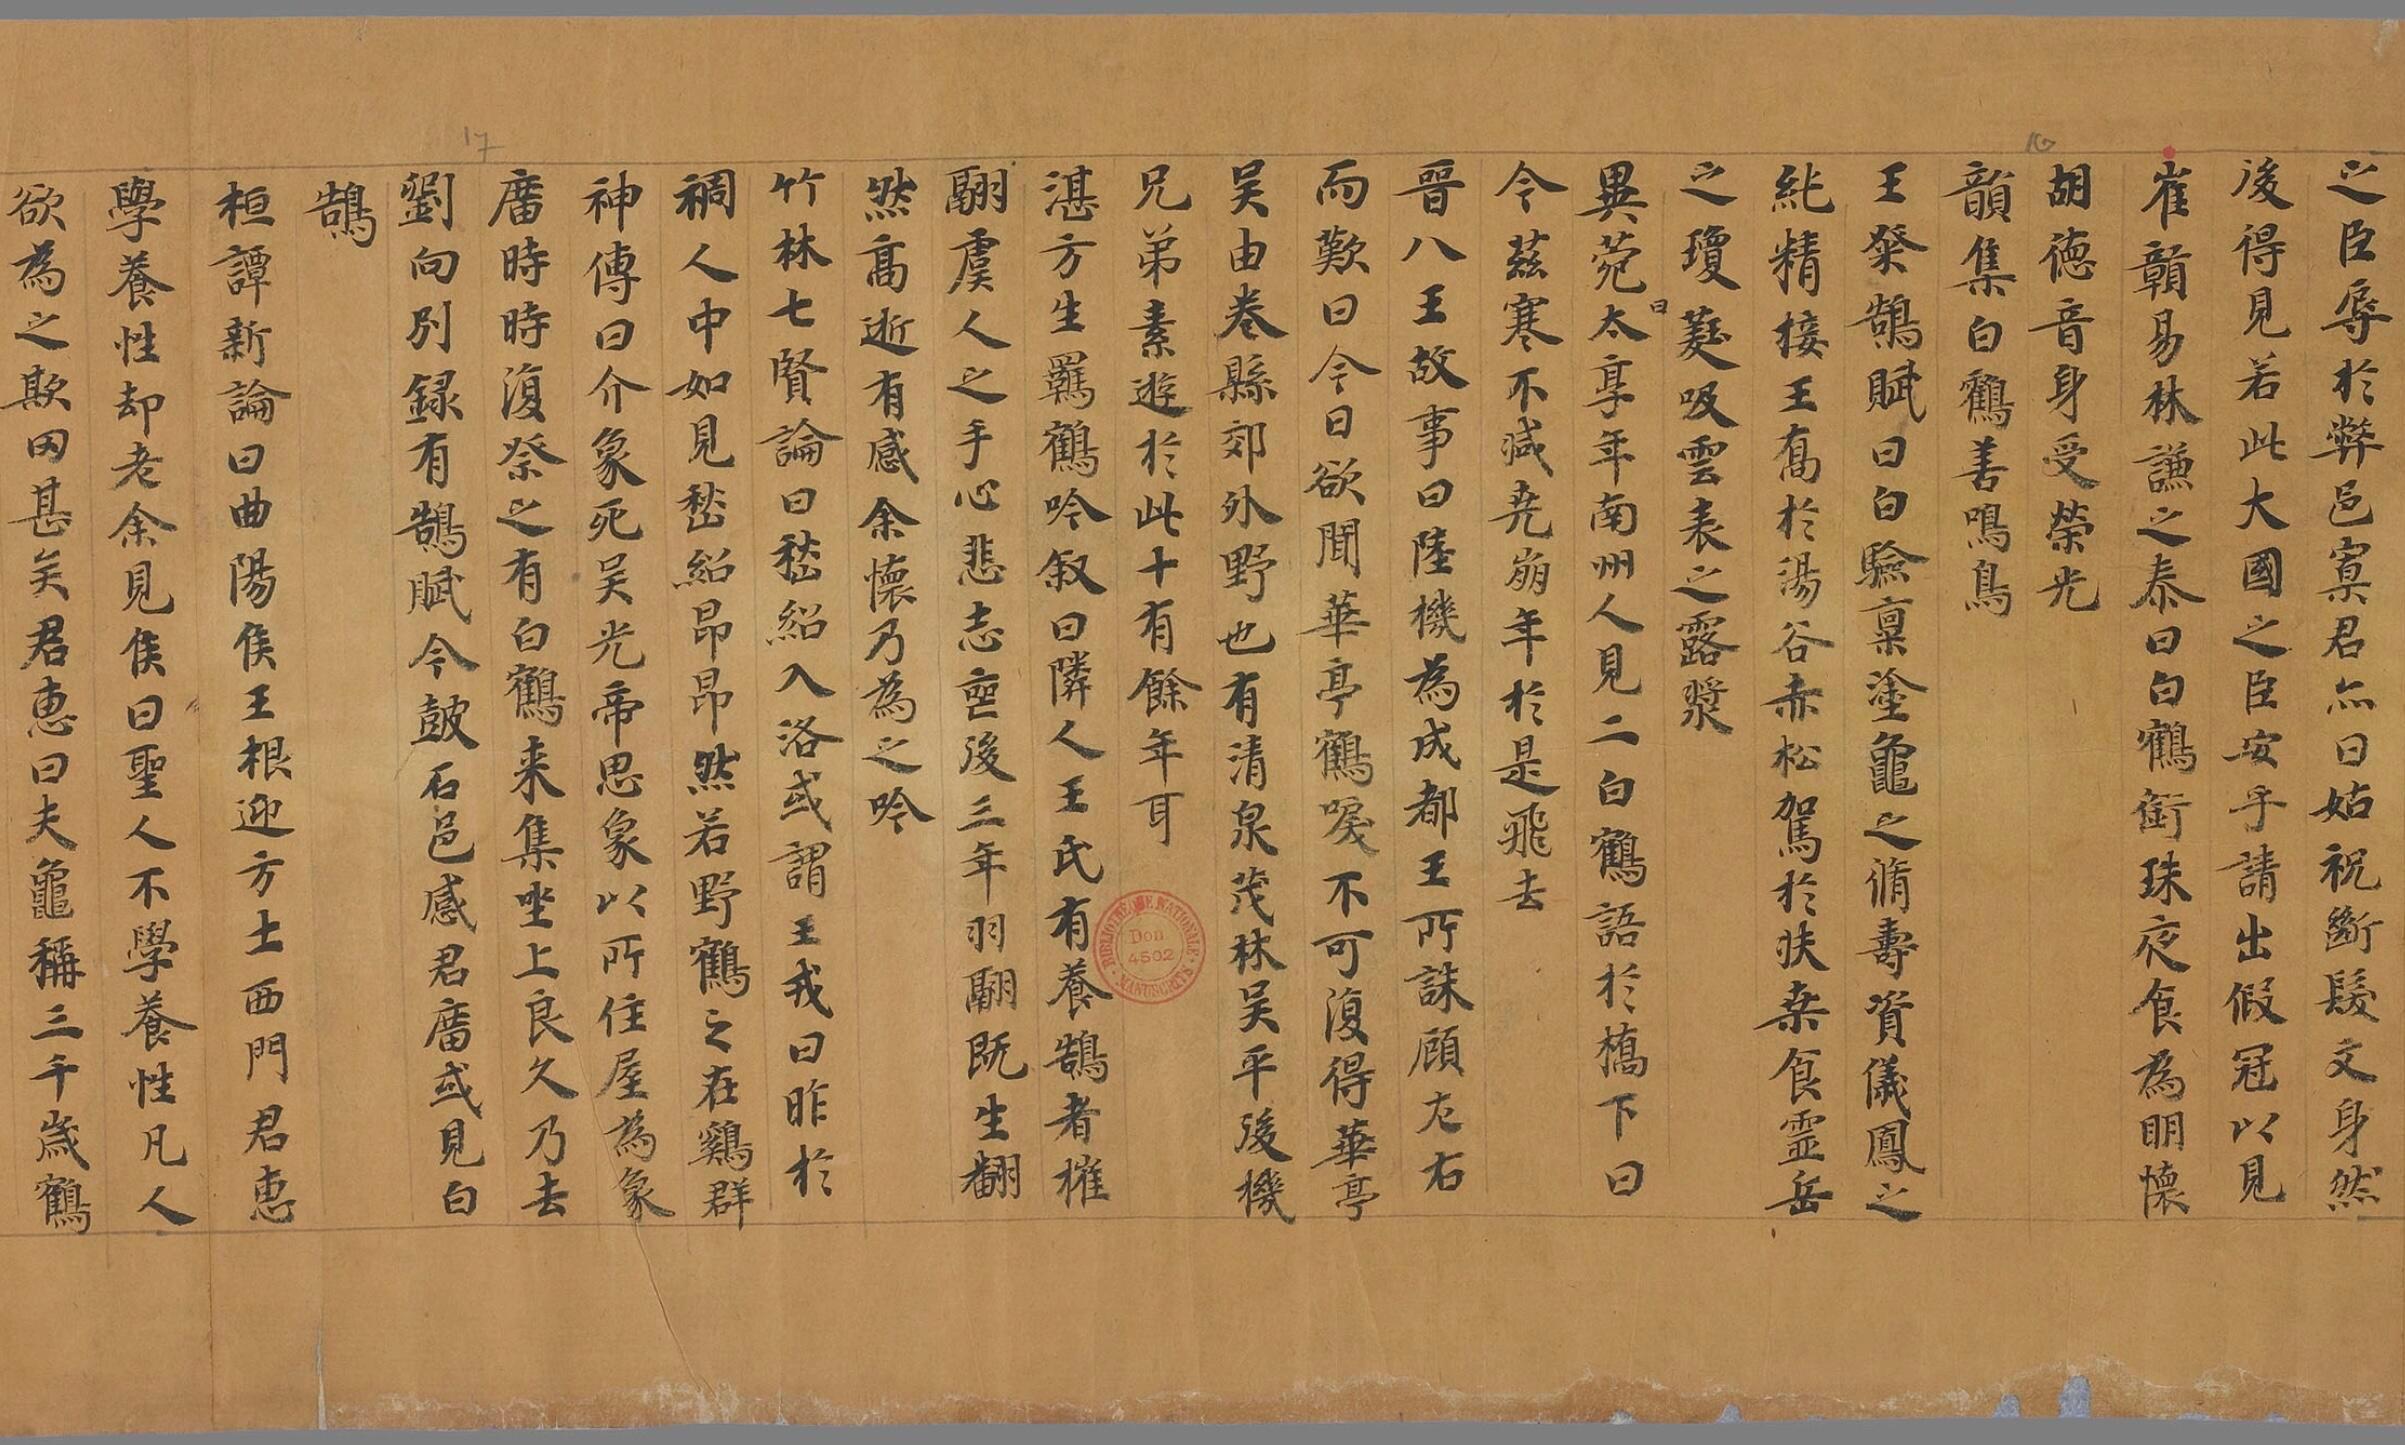 之臣辱於弊邑寡君亦曰姑祝斷髮文身然
後得見若此大國之臣安乎請出假冠以見
崔贛易林謙之泰曰白鶴銜珠夜食為明懷
胡德音身受榮光
韻集白鶴善鳴鳥
王粲鶴賦曰白驗稟塗龜之脩壽資儀鳳之
純精接王喬於湯谷赤松駕於扶桒食靈岳
之瓊蘂吸雲表之露漿
異菀曰太享年南州人見二白鶴語於橋下曰
今茲寒不減堯崩年於是飛去
晉八王故事曰陸機為成都王所誅顧左右
而歎曰今日欲聞華亭鶴唳不可復得華亭
吴由巻縣郊外野也有清泉茂林吴平後機
兄弟素遊於此十有餘年耳
湛方生羈鶴吟叙曰隣人王氏有養鵠者摧
翮虞人之手心悲志喪後三年羽翮既生翻
然髙逝有感余懷乃為之吟
竹林七賢論曰嵇紹入洛或謂王戎曰昨於
稠人中如見嵇紹昂昂然若野鶴之在鷄群
神傳曰介象死吴光帝思象以所住屋為象
廣時時復祭之有白鶴来集坐上良久乃去
劉向別録有鵠賦今皷石邑感君廣或見白
鵠
桓譚新論曰曲陽侯王根迎方士西門君惠
學養性却老余見侯曰聖人不學養性凡人
欲為之欺罔甚矣君惠曰夫龜稱三千歲鶴
BIBLIOTHEQUE NATIONALE MANUSCRITS
Don
4502
16
17